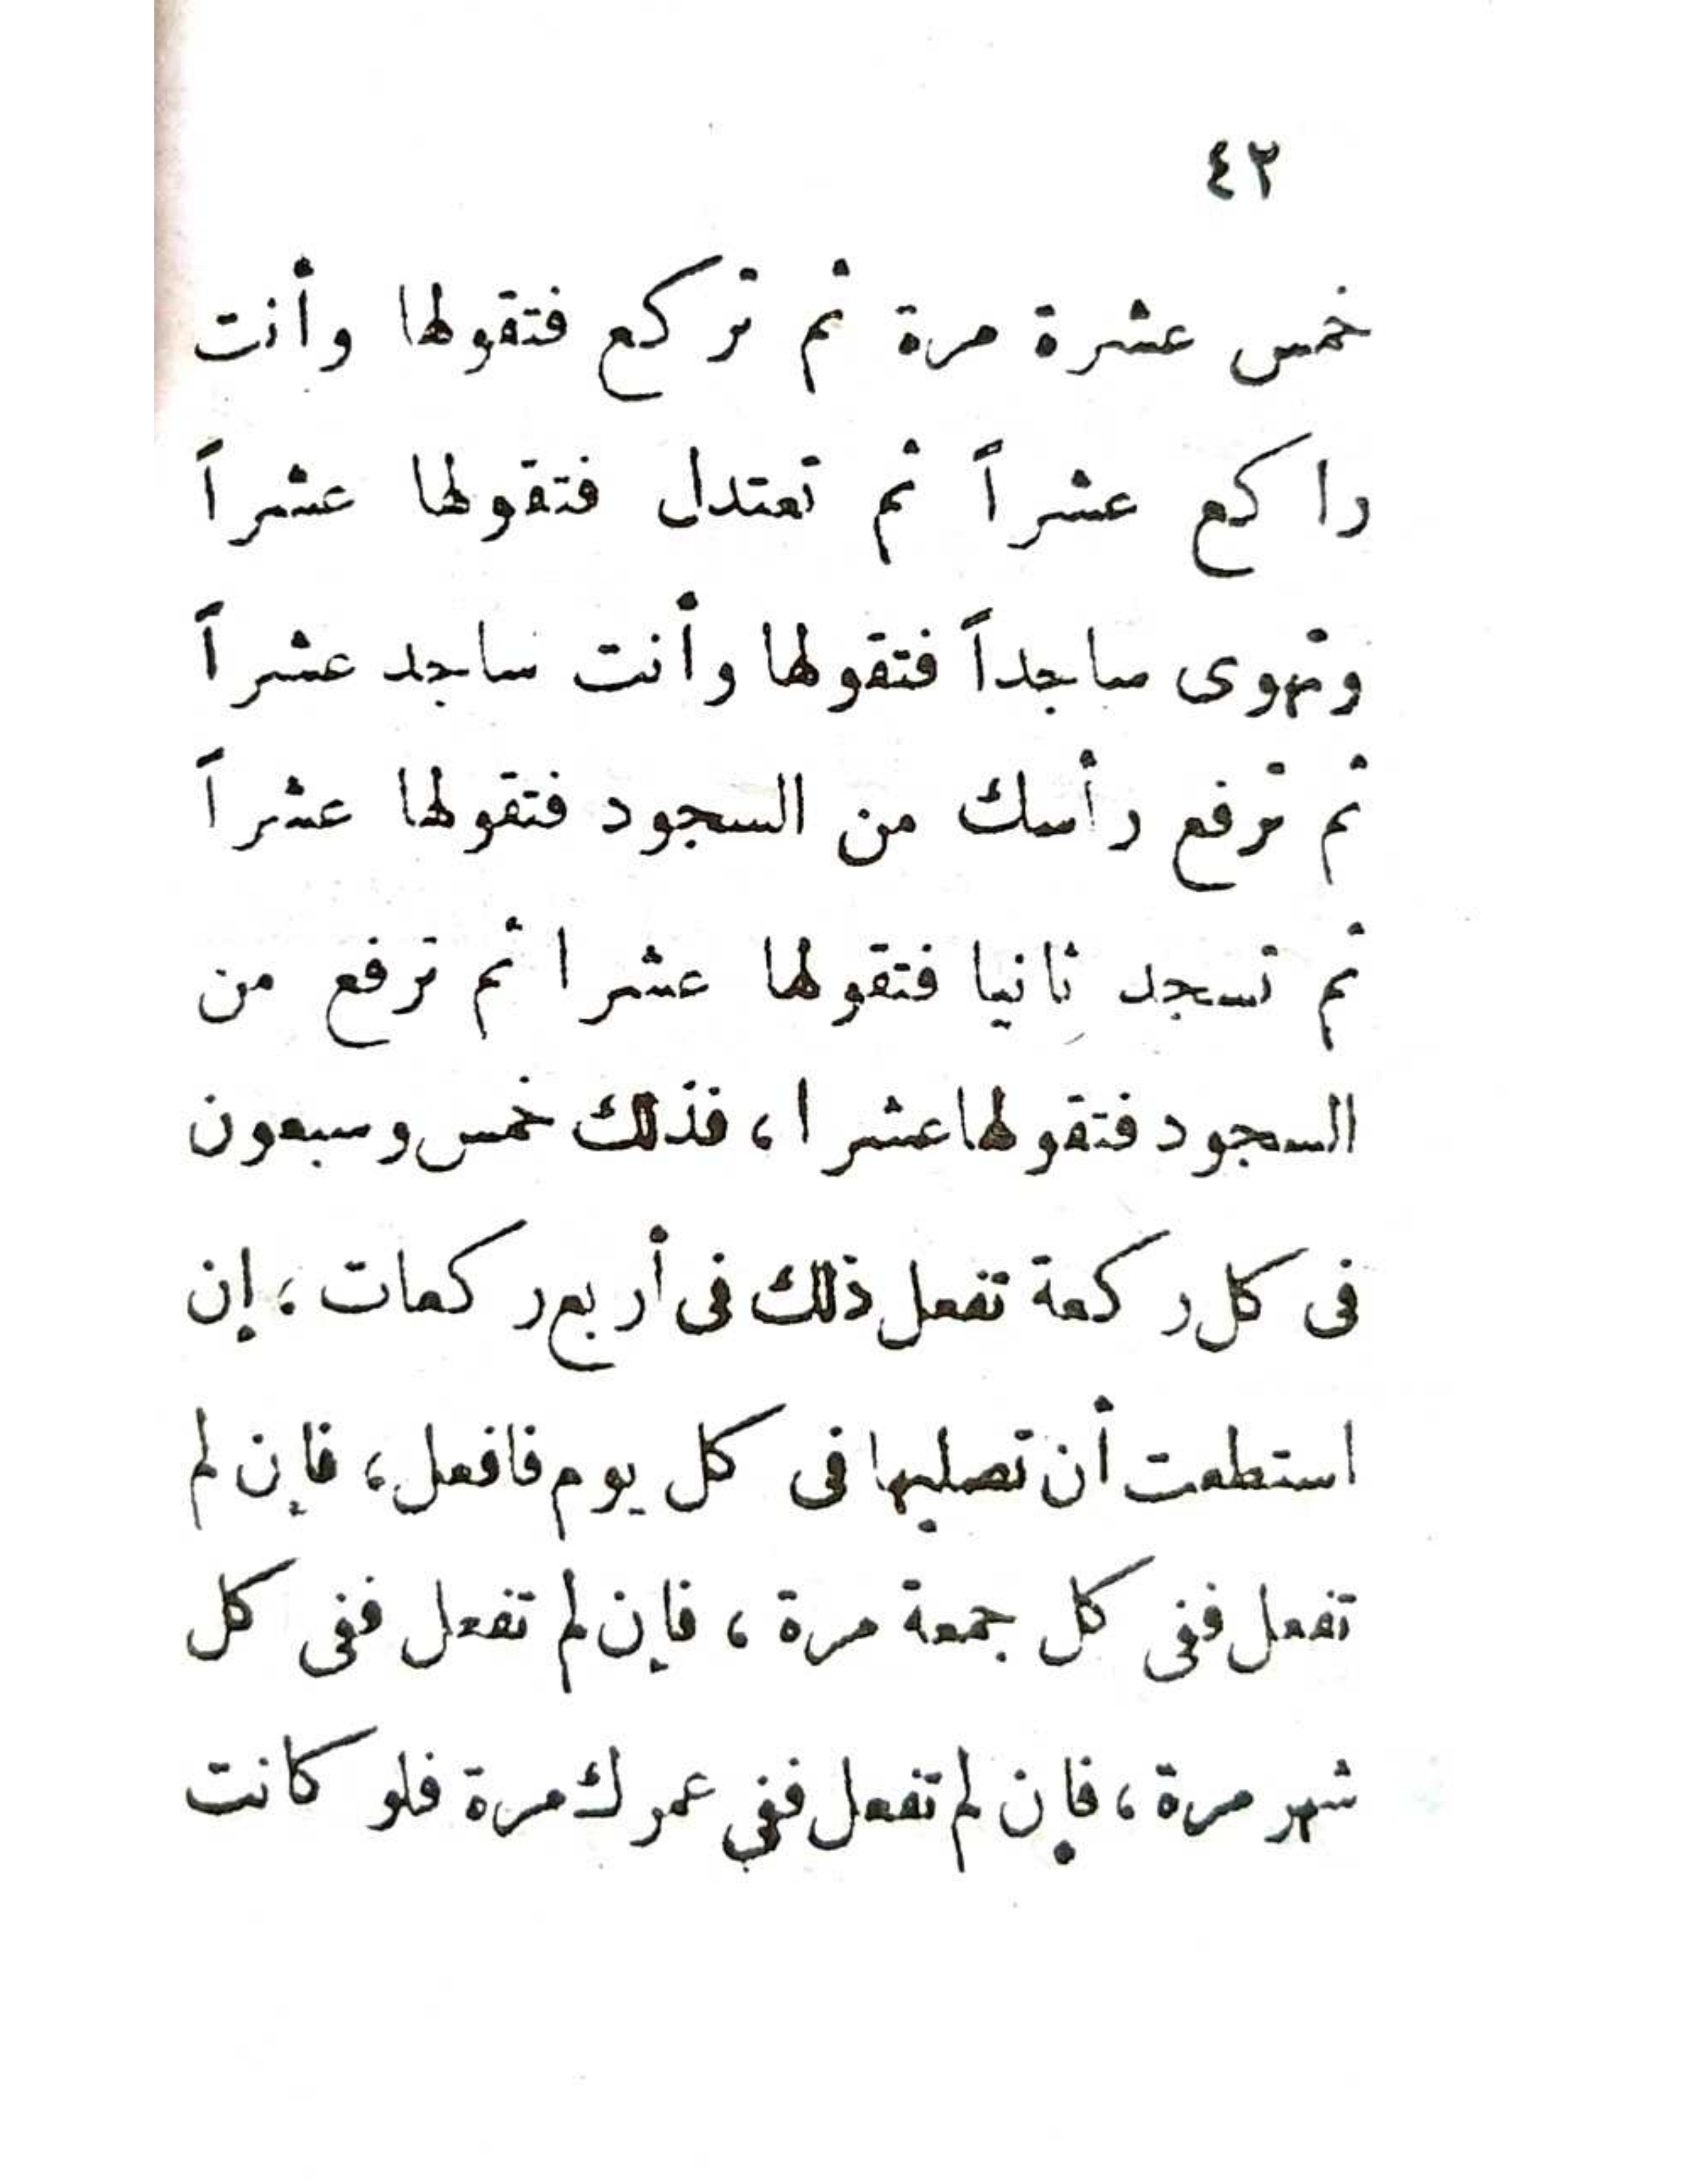 ٤٢
خمس عشرة مرة ثم تركع فتقولها وأنت
راكع عشراً ثم تعتدل فتقولها عشراً
وتهوى ساجداً فتقولها وأنت ساجد عشراً
ثم ترفع رأسك من السجود فتقولها عشراً
ثم تسجد ثانيا فتقولها عشرا ثم ترفع من
السجود فتقولها عشرا، فذلك خمس وسبعون
فى كل ركعة تفعل ذلك فى أربع ركعات ؛ إن
استطعت أن تصليها فى كل يوم فافعل، فإن لم
تفعل ففى كل جمعة مرة ، فإن لم تفعل ففى كل
شهر مرة ، فإن لم تفعل ففى عمرك مرة فلو كانت